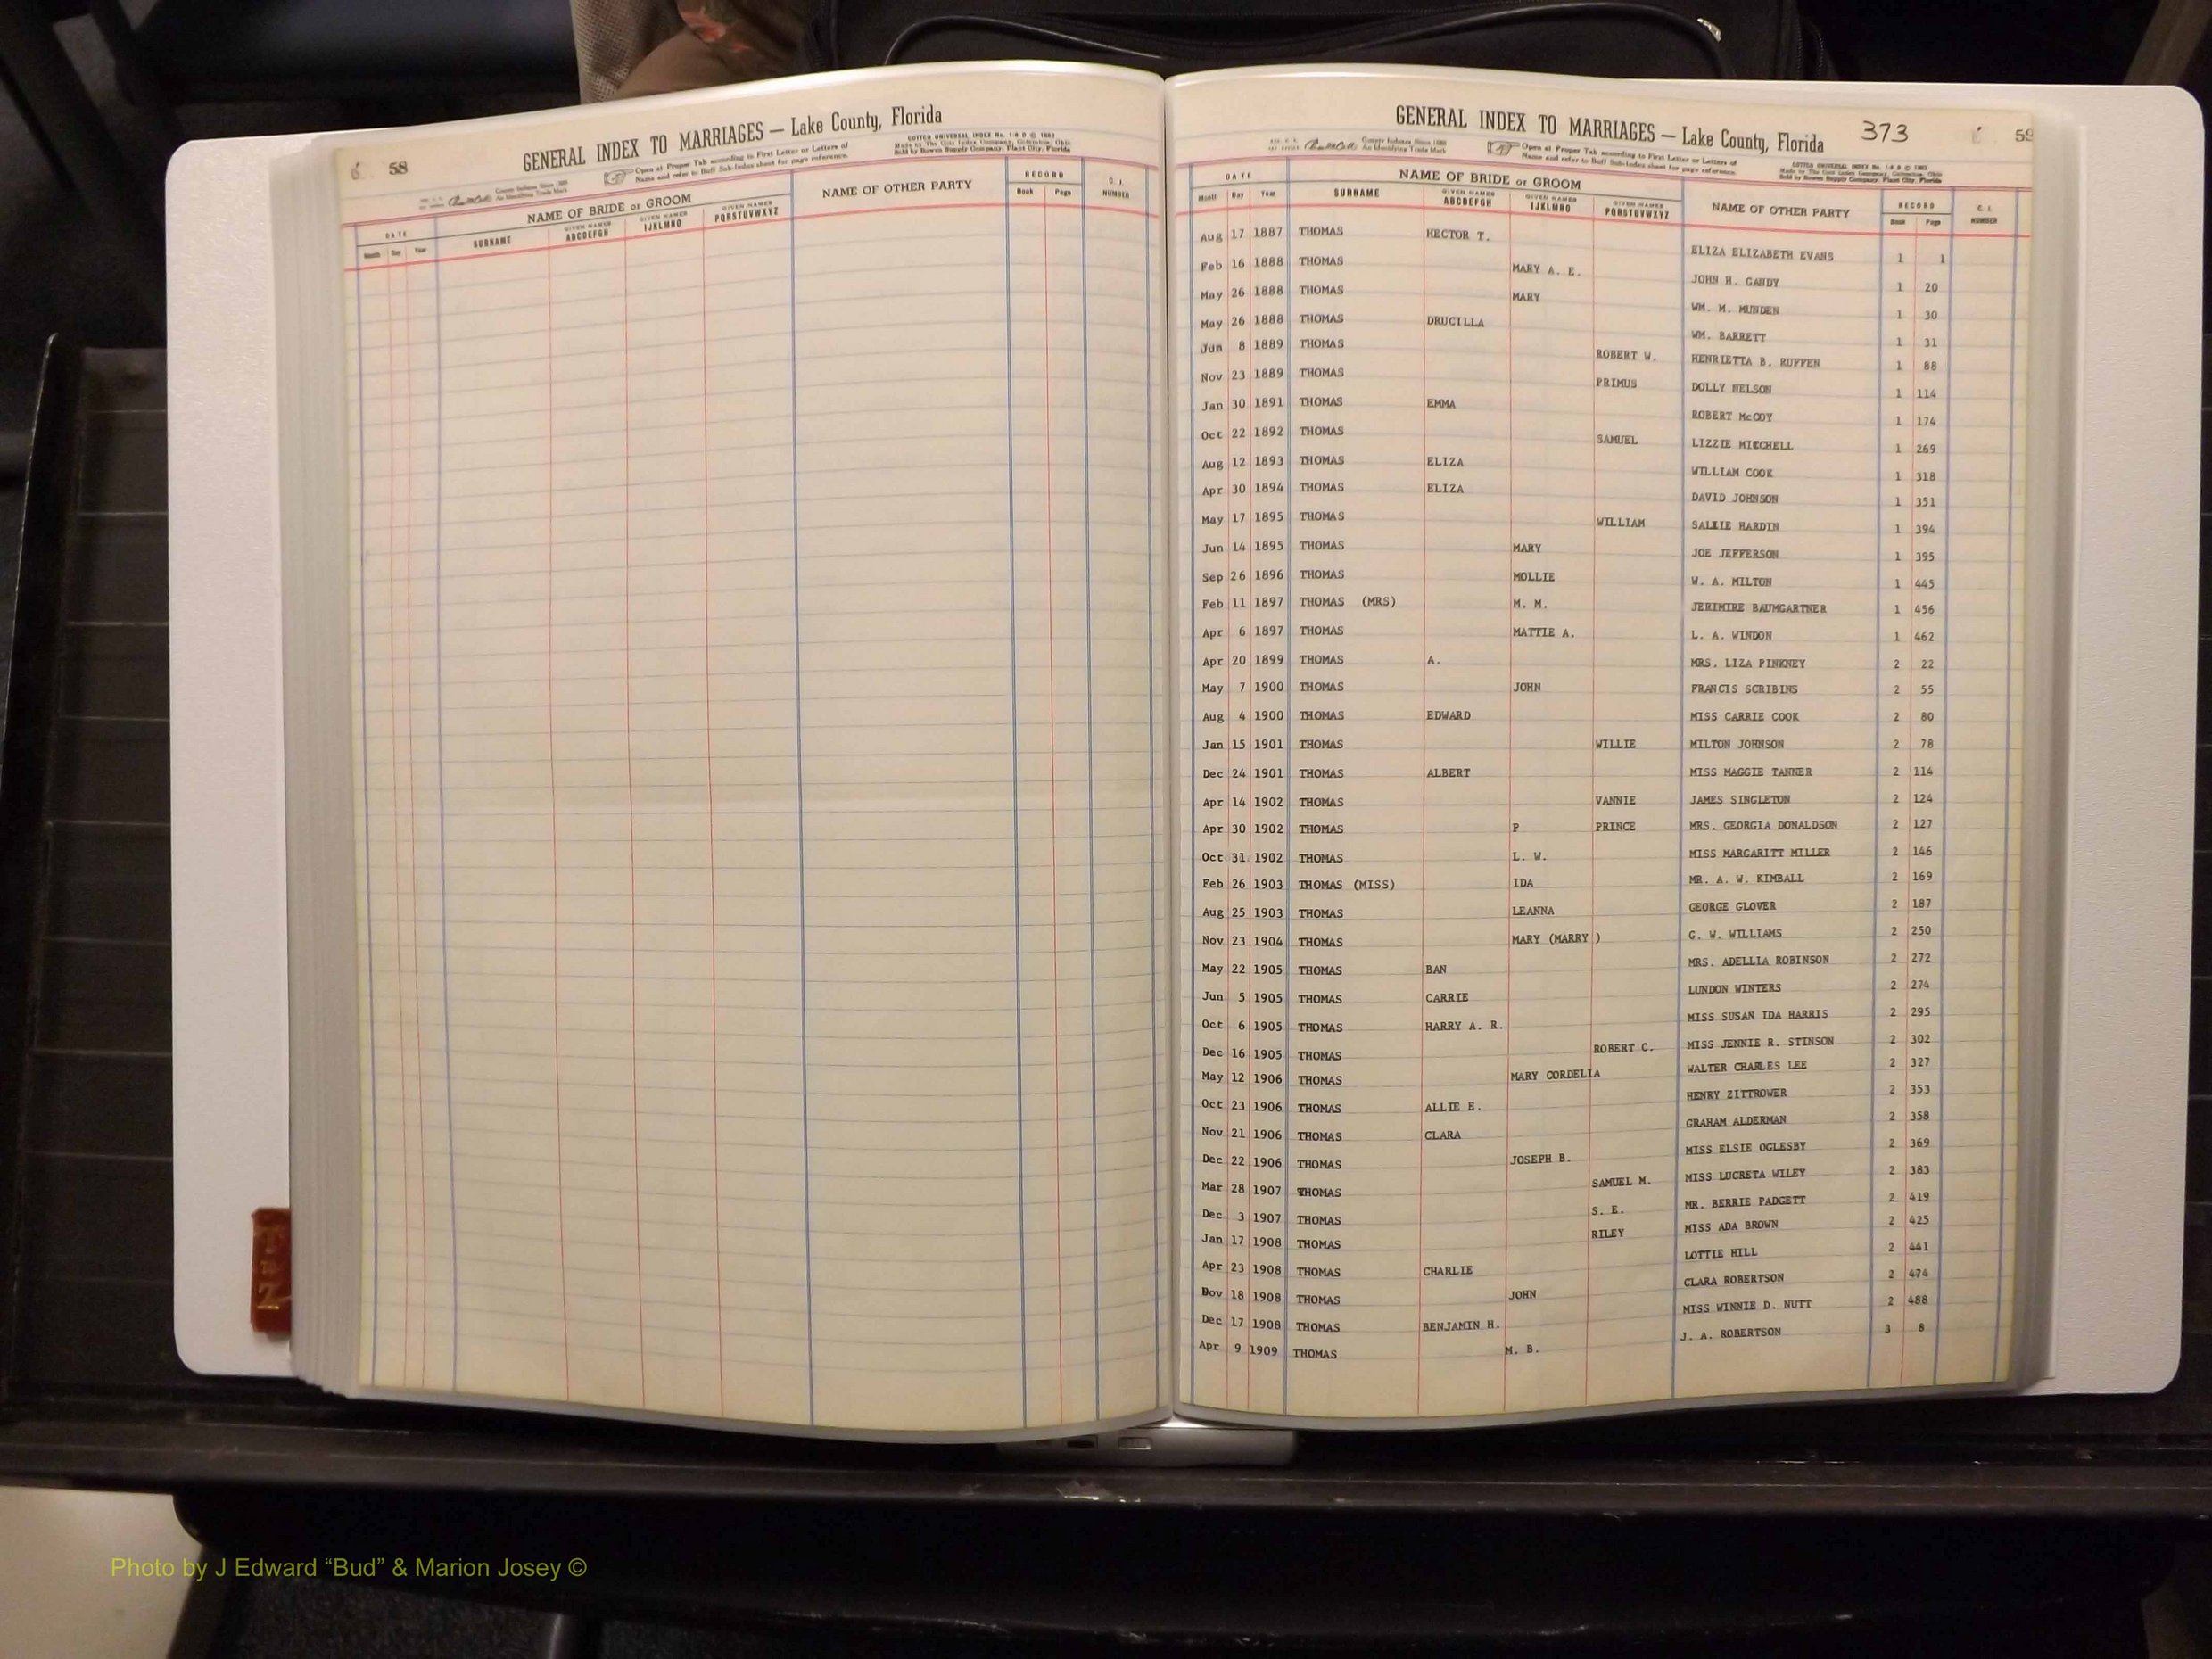 58
GENERAL INDEX TO MARRIAGES — Lake County, Florida
Open at Proper Tab according to First Letter or Letters of
Name and refer to Buff Sub-Index sheet for page reference.
COTT'S UNIVERSAL INDEX
Made by The Cott Index Company, Columbus, Ohio
Sold by Bowen Supply Company, Plant City, Florida
County Indexes Since 1888
An Identifying Trade Mark
DATE NAME OF BRIDE or GROOM NAME OF OTHER PARTY RECORD C. I. NUMBER
Month Day Year SURNAME GIVEN NAMES ABCDEFGH GIVEN NAMES IJKLMNO GIVEN NAMES PQRSTUVWXYZ Book Page
T to Z
GENERAL INDEX TO MARRIAGES — Lake County, Florida 373 59
County Indexes Since 1888
An Identifying Trade Mark
Open at Proper Tab according to First Letter or Letters of
Name and refer to Buff Sub-Index sheet for page reference.
COTT'S UNIVERSAL INDEX
Made by The Cott Index Company, Columbus, Ohio
Sold by Bowen Supply Company, Plant City, Florida
DATE NAME OF BRIDE or GROOM NAME OF OTHER PARTY RECORD C. I. NUMBER
Month Day Year SURNAME GIVEN NAMES ABCDEFGH GIVEN NAMES IJKLMNO GIVEN NAMES PQRSTUVWXYZ Book Page
Aug 17 1887 THOMAS HECTOR T. ELIZA ELIZABETH EVANS 1 1
Feb 16 1888 THOMAS MARY A. E. JOHN H. GANDY 1 20
May 26 1888 THOMAS MARY WM. M. MUNDEN 1 30
May 26 1888 THOMAS DRUCILLA WM. BARRETT 1 31
Jun 8 1889 THOMAS ROBERT W. HENRIETTA B. RUFFEN 1 88
Nov 23 1889 THOMAS PRIMUS DOLLY NELSON 1 114
Jan 30 1891 THOMAS EMMA ROBERT McCOY 1 174
Oct 22 1892 THOMAS SAMUEL LIZZIE MITCHELL 1 269
Aug 12 1893 THOMAS ELIZA WILLIAM COOK 1 318
Apr 30 1894 THOMAS ELIZA DAVID JOHNSON 1 351
May 17 1895 THOMAS WILLIAM SALLIE HARDIN 1 394
Jun 14 1895 THOMAS MARY JOE JEFFERSON 1 395
Sep 26 1896 THOMAS MOLLIE W. A. MILTON 1 445
Feb 11 1897 THOMAS (MRS) M. M. JERIMIRE BAUMGARTNER 1 456
Apr 6 1897 THOMAS MATTIE A. L. A. WINDON 1 462
Apr 20 1899 THOMAS A. MRS. LIZA PINKNEY 2 22
May 7 1900 THOMAS JOHN FRANCIS SCRIBINS 2 55
Aug 4 1900 THOMAS EDWARD MISS CARRIE COOK 2 80
Jan 15 1901 THOMAS WILLIE MILTON JOHNSON 2 78
Dec 24 1901 THOMAS ALBERT MISS MAGGIE TANNER 2 114
Apr 14 1902 THOMAS VANNIE JAMES SINGLETON 2 124
Apr 30 1902 THOMAS P PRINCE MRS. GEORGIA DONALDSON 2 127
Oct 31 1902 THOMAS L. W. MISS MARGARITT MILLER 2 146
Feb 26 1903 THOMAS (MISS) IDA MR. A. W. KIMBALL 2 169
Aug 25 1903 THOMAS LEANNA GEORGE GLOVER 2 187
Nov 23 1904 THOMAS MARY (MARRY) G. W. WILLIAMS 2 250
May 22 1905 THOMAS BAN MRS. ADELLIA ROBINSON 2 272
Jun 5 1905 THOMAS CARRIE LUNDON WINTERS 2 274
Oct 6 1905 THOMAS HARRY A. R. MISS SUSAN IDA HARRIS 2 295
Dec 16 1905 THOMAS ROBERT C. MISS JENNIE R. STINSON 2 302
May 12 1906 THOMAS MARY CORDELIA WALTER CHARLES LEE 2 327
Oct 23 1906 THOMAS ALLIE E. HENRY ZITTROWER 2 353
Nov 21 1906 THOMAS CLARA GRAHAM ALDERMAN 2 358
Dec 22 1906 THOMAS JOSEPH B. MISS ELSIE OGLESBY 2 369
Mar 28 1907 THOMAS SAMUEL M. MISS LUCRETA WILEY 2 383
Dec 3 1907 THOMAS S. E. MR. BERRIE PADGETT 2 419
Jan 17 1908 THOMAS RILEY MISS ADA BROWN 2 425
Apr 23 1908 THOMAS CHARLIE LOTTIE HILL 2 441
Nov 18 1908 THOMAS JOHN CLARA ROBERTSON 2 474
Dec 17 1908 THOMAS BENJAMIN H. MISS WINNIE D. NUTT 2 488
Apr 9 1909 THOMAS M. B. J. A. ROBERTSON 3 8
Photo by J Edward “Bud” & Marion Josey ©